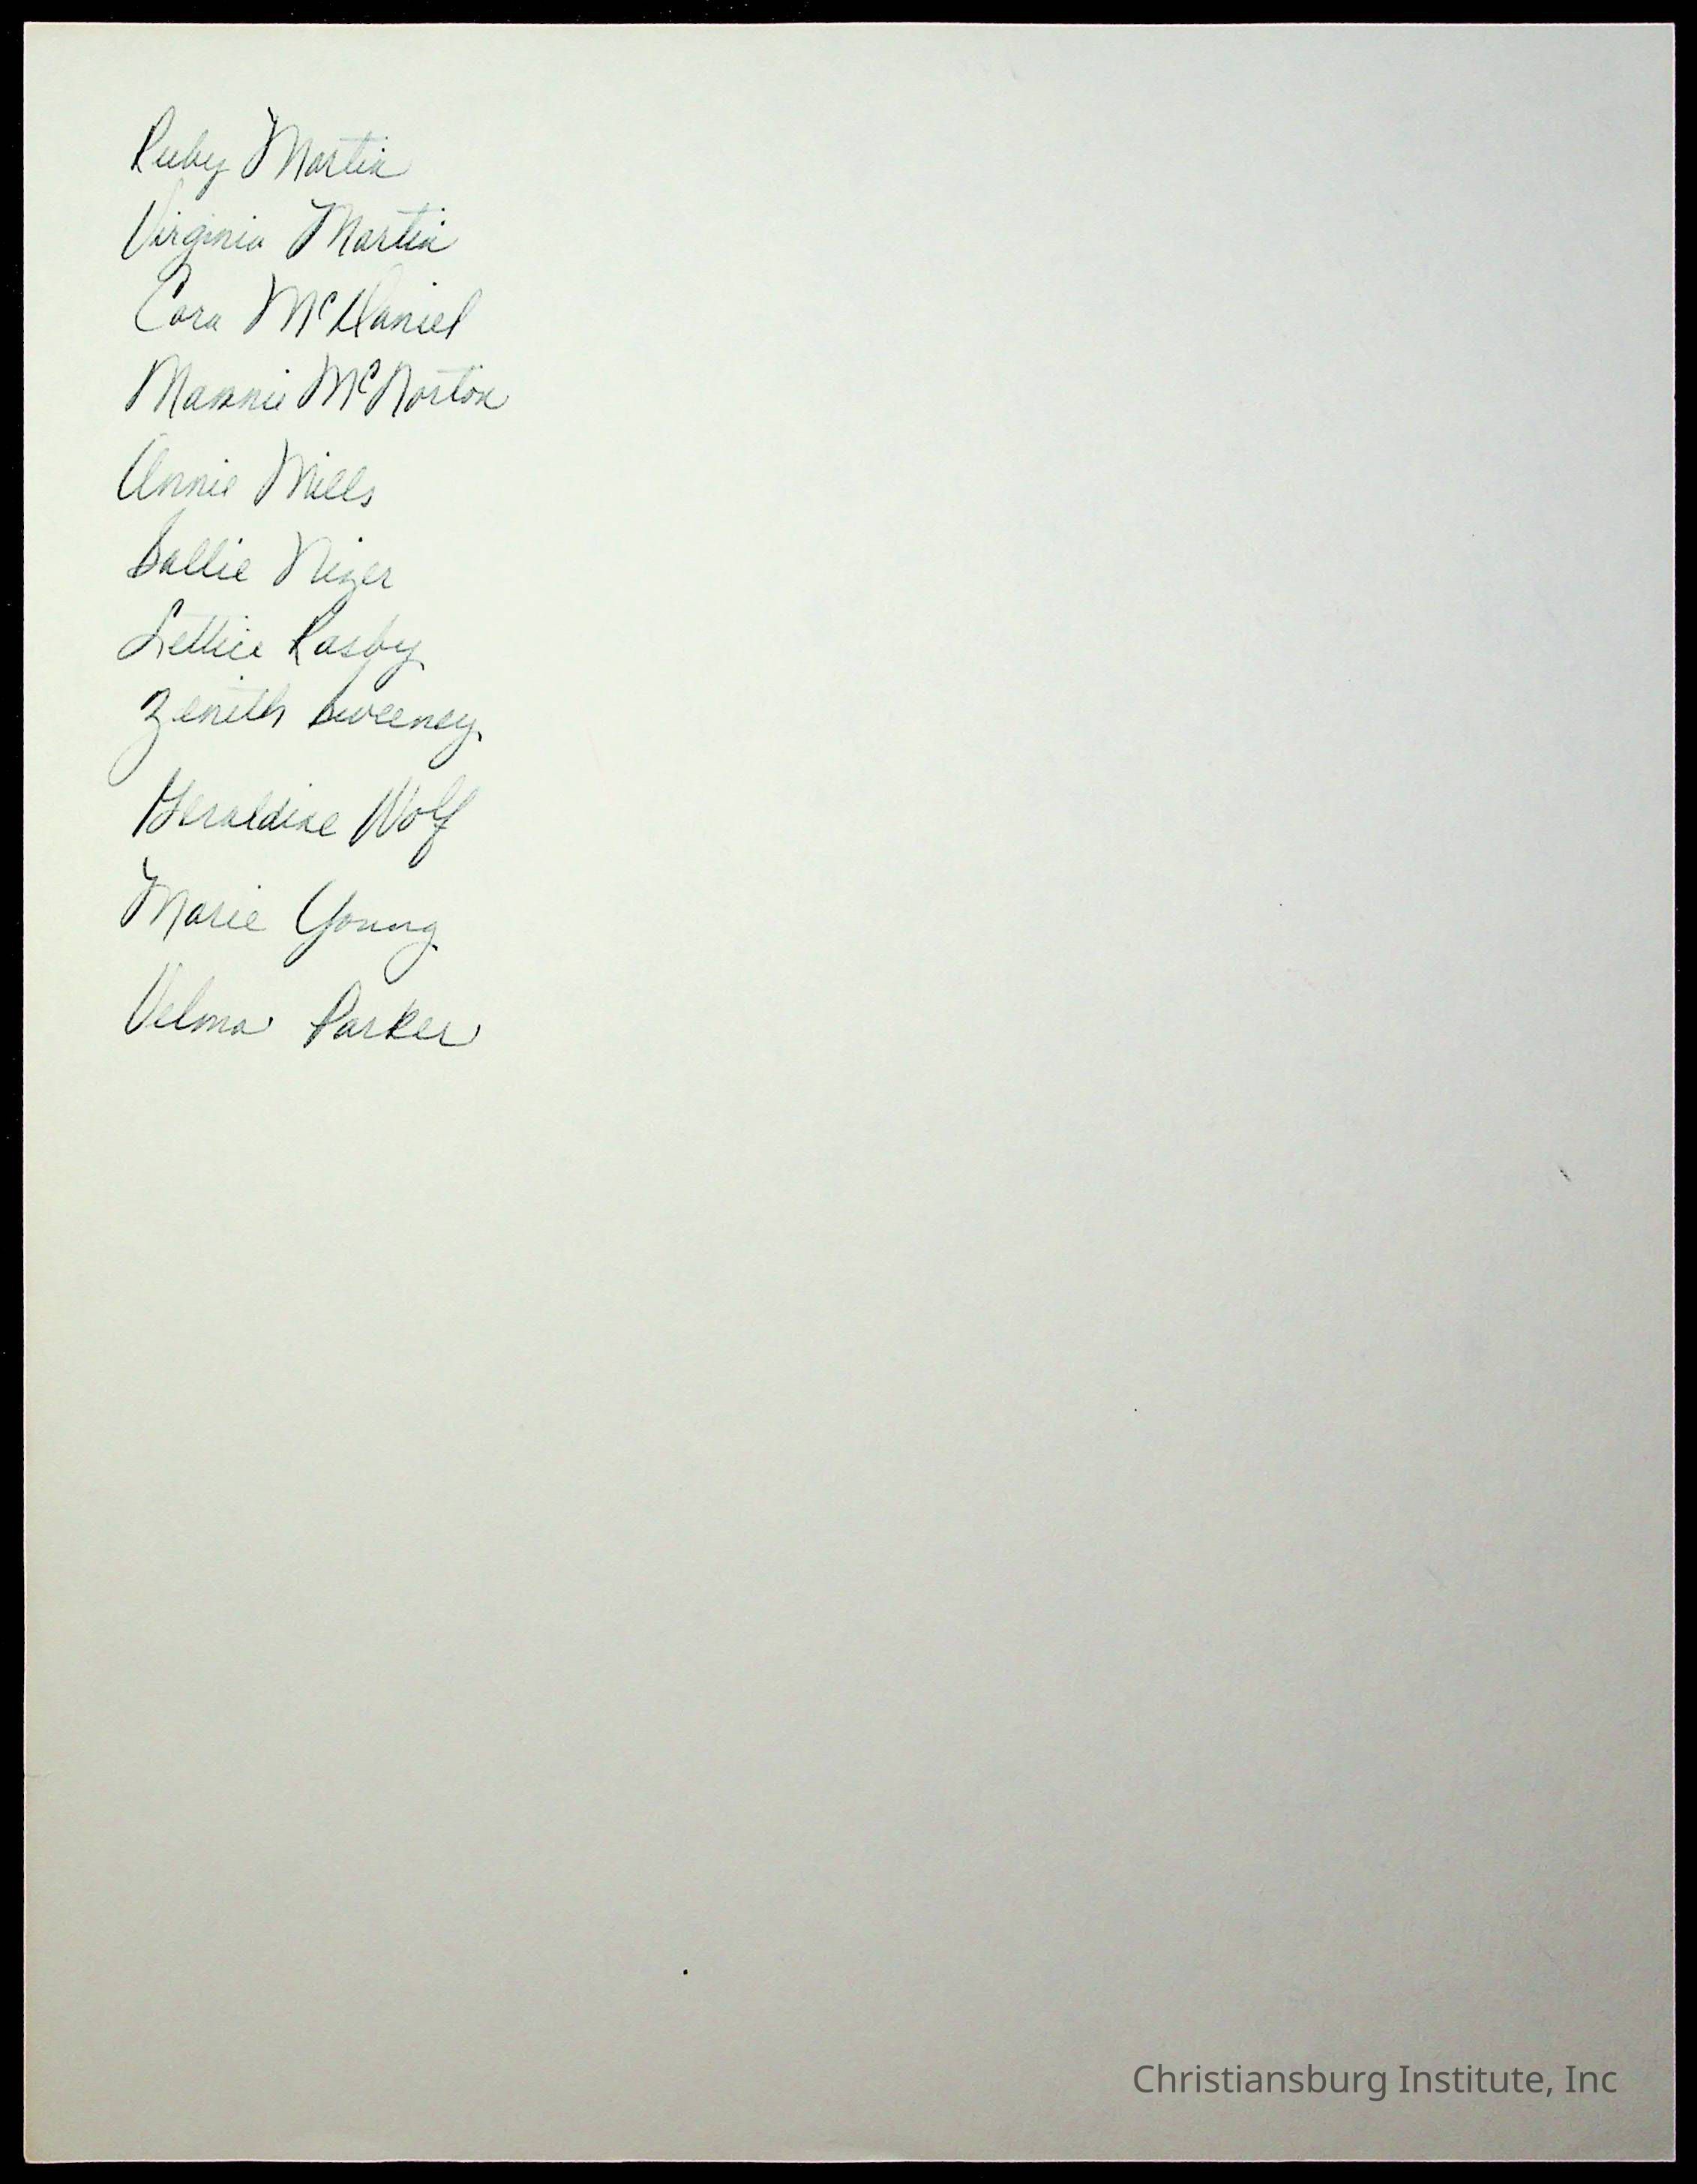 Ruby Martin
Virginia Martin
Cora McDaniel
Mannie McNorton
Annie Mills
Sallie Nizer
Lettie Rasby
Zenith Sweeney
Geraldine Wolf
Marie Young
Velma Parker
Christiansburg Institute, Inc